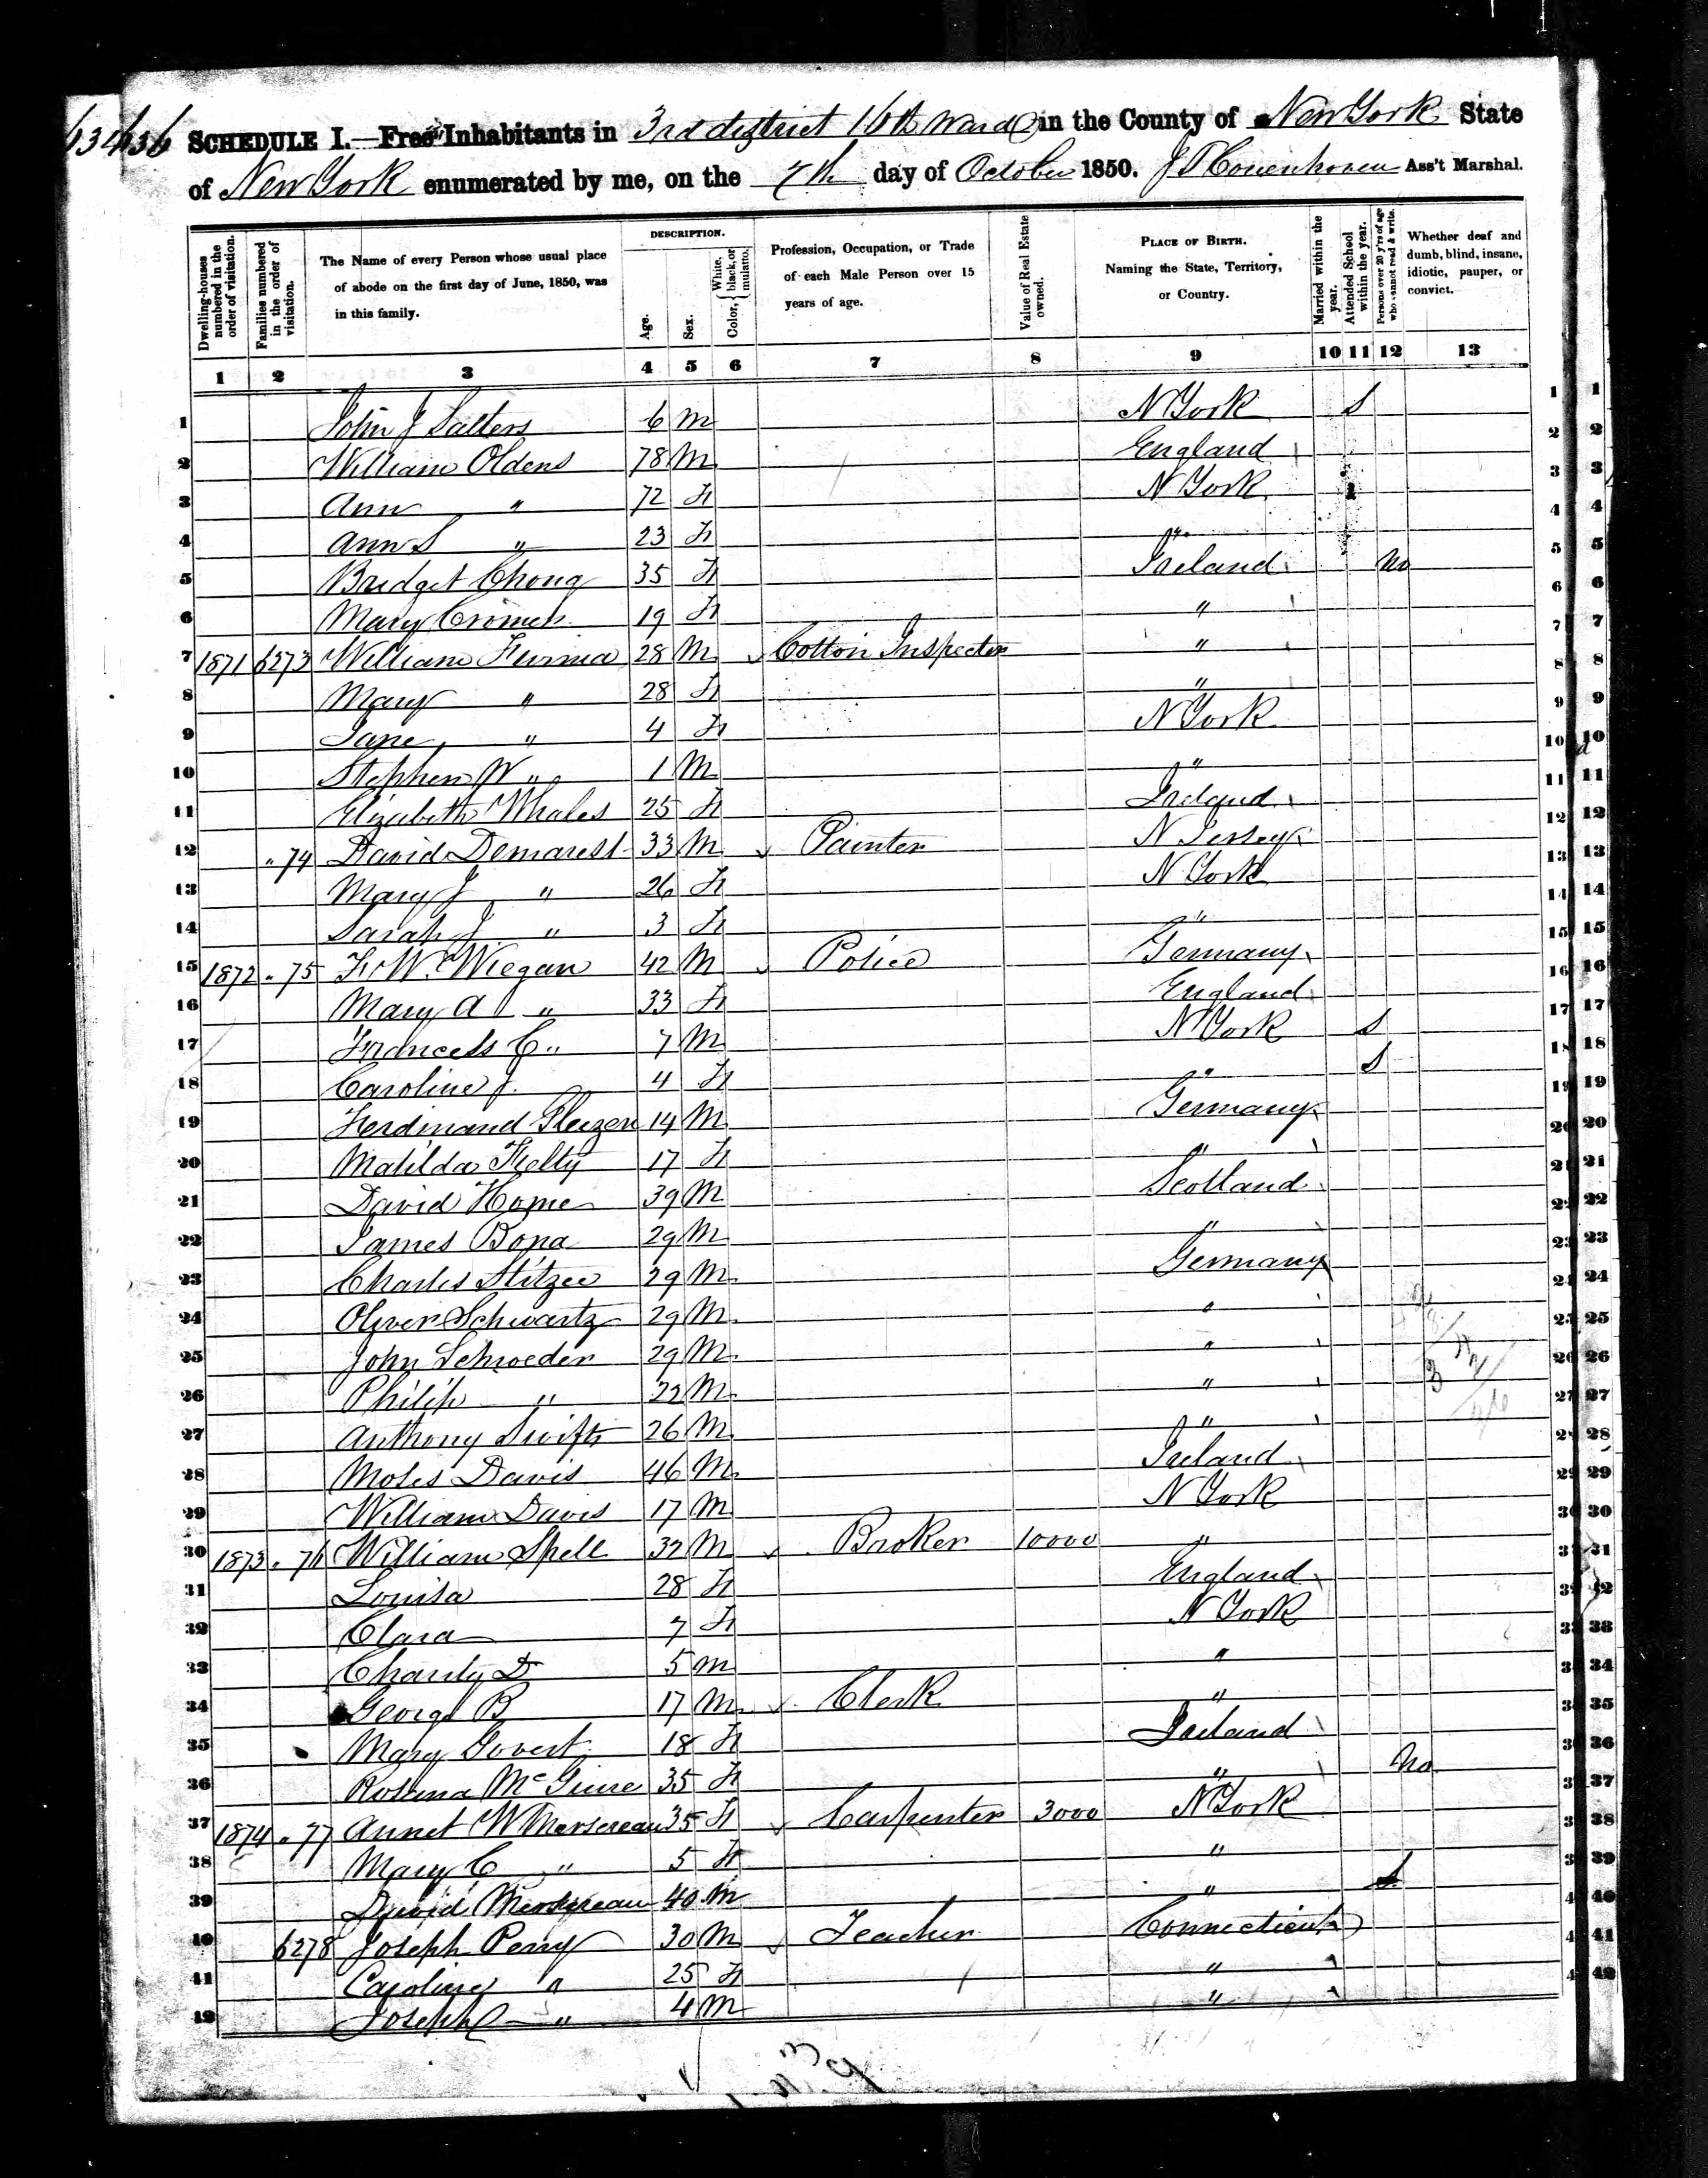 SCHEDULE I.—Free Inhabitants in 3rd district 16th Ward in the County of New York State
of New York enumerated by me, on the 7th day of October 1850. J P Couenhoven Ass't Marshal.
Dwelling-houses numbered in the order of visitation. Families numbered in the order of visitation. The Name of every Person whose usual place of abode on the first day of June, 1850, was in this family. DESCRIPTION. Age. Sex. Color, { White, black, or mulatto. Profession, Occupation, or Trade of each Male Person over 15 years of age. Value of Real Estate owned. PLACE OF BIRTH. Naming the State, Territory, or Country. Married within the year. Attended School within the year. Persons over 20 y'rs of age who cannot read & write. Whether deaf and dumb, blind, insane, idiotic, pauper, or convict.
1 2 3 4 5 6 7 8 9 10 11 12 13
1 John J Salters 6 M N York S 1
2 William Oldens 78 M England 2
3 Ann " 72 F N York 3
4 Ann S " 23 F " 4
5 Bridget 35 F Ireland No 5
6 Mary 19 F " 6
7 1871 6273 William 28 M Cotton Inspector " 7
8 Mary " 28 F " 8
9 Jane " 4 F N York 9
10 Stephen W " 1 M " 10
11 Elizabeth Whales 25 F Ireland 11
12 " 74 David Demarest 33 M Painter N Jersey 12
13 Mary J " 26 F N York 13
14 Sarah J " 3 F " 14
15 1872 " 75 F W Wiegan 42 M Police Germany 15
16 Mary A " 33 F England 16
17 Francis C " 7 M N York S 17
18 Caroline J 4 F " S 18
19 Ferdinand 14 M Germany 19
20 Matilda 17 F " 20
21 David Home 39 M Scotland 21
22 James Bona 29 M " 22
23 Charles Stitzee 29 M Germany 23
24 Oliver Schwartz 29 M " 24
25 John Schroeder 29 M " 25
26 Philip " 22 M " 26
27 Anthony Swifts 26 M " 27
28 Moses Davis 46 M Ireland 28
29 William Davis 17 M N York 29
30 1873 " 76 William Spell 32 M Broker 10000 " 30
31 Louisa 28 F England 31
32 Clara 7 F N York 32
33 Charity D 5 M " 33
34 George B 17 M Clerk " 34
35 Mary Govert 18 F Ireland 35
36 Rosanna McGuire 35 F " No 36
37 1874 " 77 Annet W Mersereau 35 F Carpenter 3000 N York 37
38 Mary C " 5 F " 38
39 David Mersereau 40 M " S 39
40 6278 Joseph Perry 30 M Teacher Connecticut 40
41 Caroline " 25 F " 41
42 Joseph C " 4 M " 42